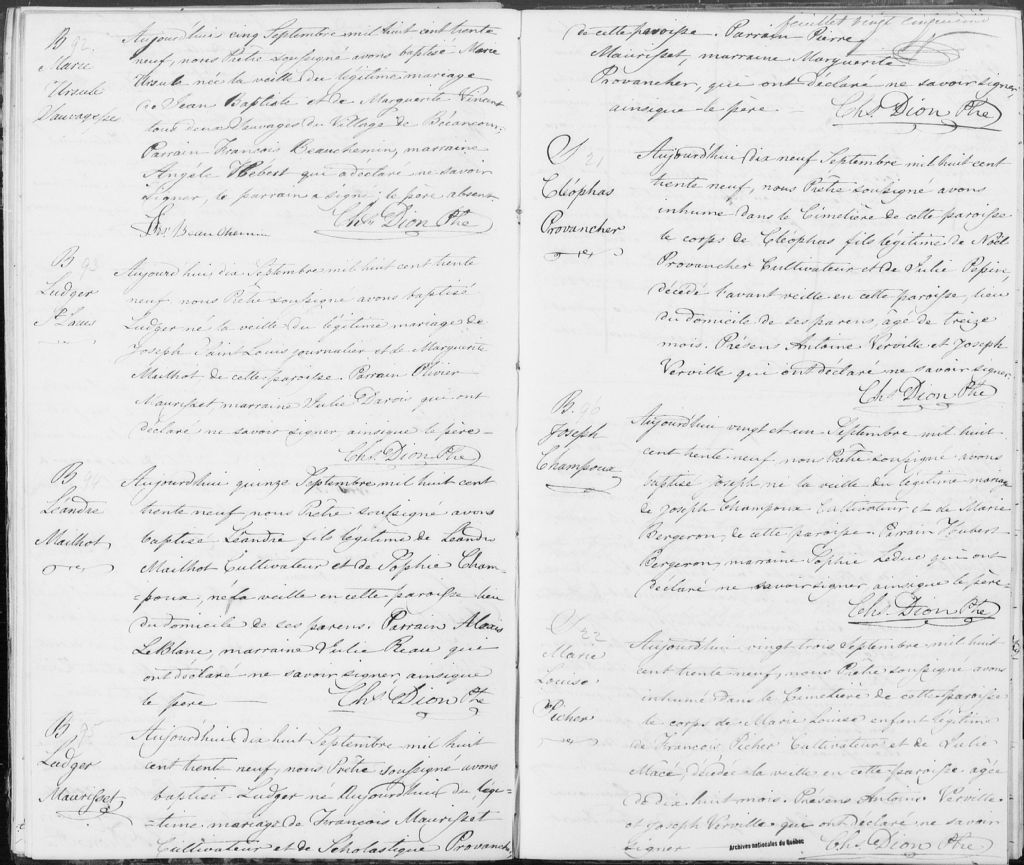 B 92.
Marie
Ursule
Sauvagesse
Aujourd'hui cinq Septembre mil huit cent trente
neuf, nous Prêtre soussigné avons baptisé Marie
Ursule née la veille du légitime mariage
de Jean Baptiste et de Marguerite Vincent
tous deux Sauvages du Village de Bécancour.
Parrain François Beauchemin, marraine
Angèle Hébert qui a déclaré ne savoir
signer, le parrain a signé; le père absent.
Frs Beauchemin Chs. Dion Ptre
B 93
Ludger
St Louis
Aujourd'hui dix Septembre mil huit cent trente
neuf nous Prêtre soussigné avons baptisé
Ludger né la veille du légitime mariage de
Joseph Saint Louis journalier et de Marguerite
Mailhot de cette paroisse. Parrain Olivier
Maurisset, marraine Julie Darois qui ont
déclaré ne savoir signer, ainsique le père -
Chs. Dion Ptre
B 94
Léandre
Mailhot
Aujourd'hui quinze Septembre mil huit cent
trente neuf nous Prêtre soussigné avons
baptisé Léandre fils légitime de Léandre
Mailhot Cultivateur et de Sophie Cham-
-poux, né la veille en cette paroisse lieu
du domicile de ses parens. Parrain Alexis
LeBlanc, marraine Julie Beau qui
ont déclaré ne savoir signer, ainsique
le père — Chs. Dion Ptre
B 95
Ludger
Maurisset
Aujourd'hui dix huit Septembre mil huit
cent trente neuf, nous Prêtre soussigné avons
baptisé Ludger né Aujourd'hui du légi-
-time mariage de François Maurisset
Cultivateur et de Scholastique Provancher
feuillet vingt cinquième
de cette paroisse. Parrain Pierre
Maurisset, marraine Marguerite
Provancher, qui ont déclaré ne savoir signer,
ainsique le père — Chs. Dion Ptre
S 21
Cléophas
Provancher
Aujourd'hui dix neuf Septembre mil huit cent
trente neuf, nous Prêtre soussigné avons
inhumé dans le Cimetière de cette paroisse
le corps de Cléophas fils légitime de Noël
Provancher Cultivateur et de Julie Pepin,
décédé l'avant veille en cette paroisse, lieu
du domicile de ses parens âgé de treize
mois. Présens Antoine Verville et Joseph
Verville qui ont déclaré ne savoir signer.
Chs. Dion Ptre
B. 96
Joseph
Champoux
Aujourd'hui vingt et un Septembre mil huit
cent trente neuf, nous Prêtre soussigné avons
baptisé Joseph né la veille du légitime mariage
de Joseph Champoux Cultivateur et de Marie
Bergeron, de cette paroisse. Parrain Hubert
Bergeron, marraine Sophie Leduc qui ont
déclaré ne savoir signer ainsique le père -
Chs. Dion Ptre
S 22
Marie
Louise
Picher
Aujourd'hui vingt trois Septembre mil huit
cent trente neuf, nous Prêtre soussigné avons
inhumé dans le Cimetière de cette paroisse
le corps de Marie Louise enfant légitime
de François Picher Cultivateur et de Julie
Macé, décédée la veille en cette paroisse agée
de dix huit mois. Présens Antoine Verville
et Joseph Verville qui ont déclaré ne savoir
signer Chs. Dion Ptre
Archives nationales du Québec